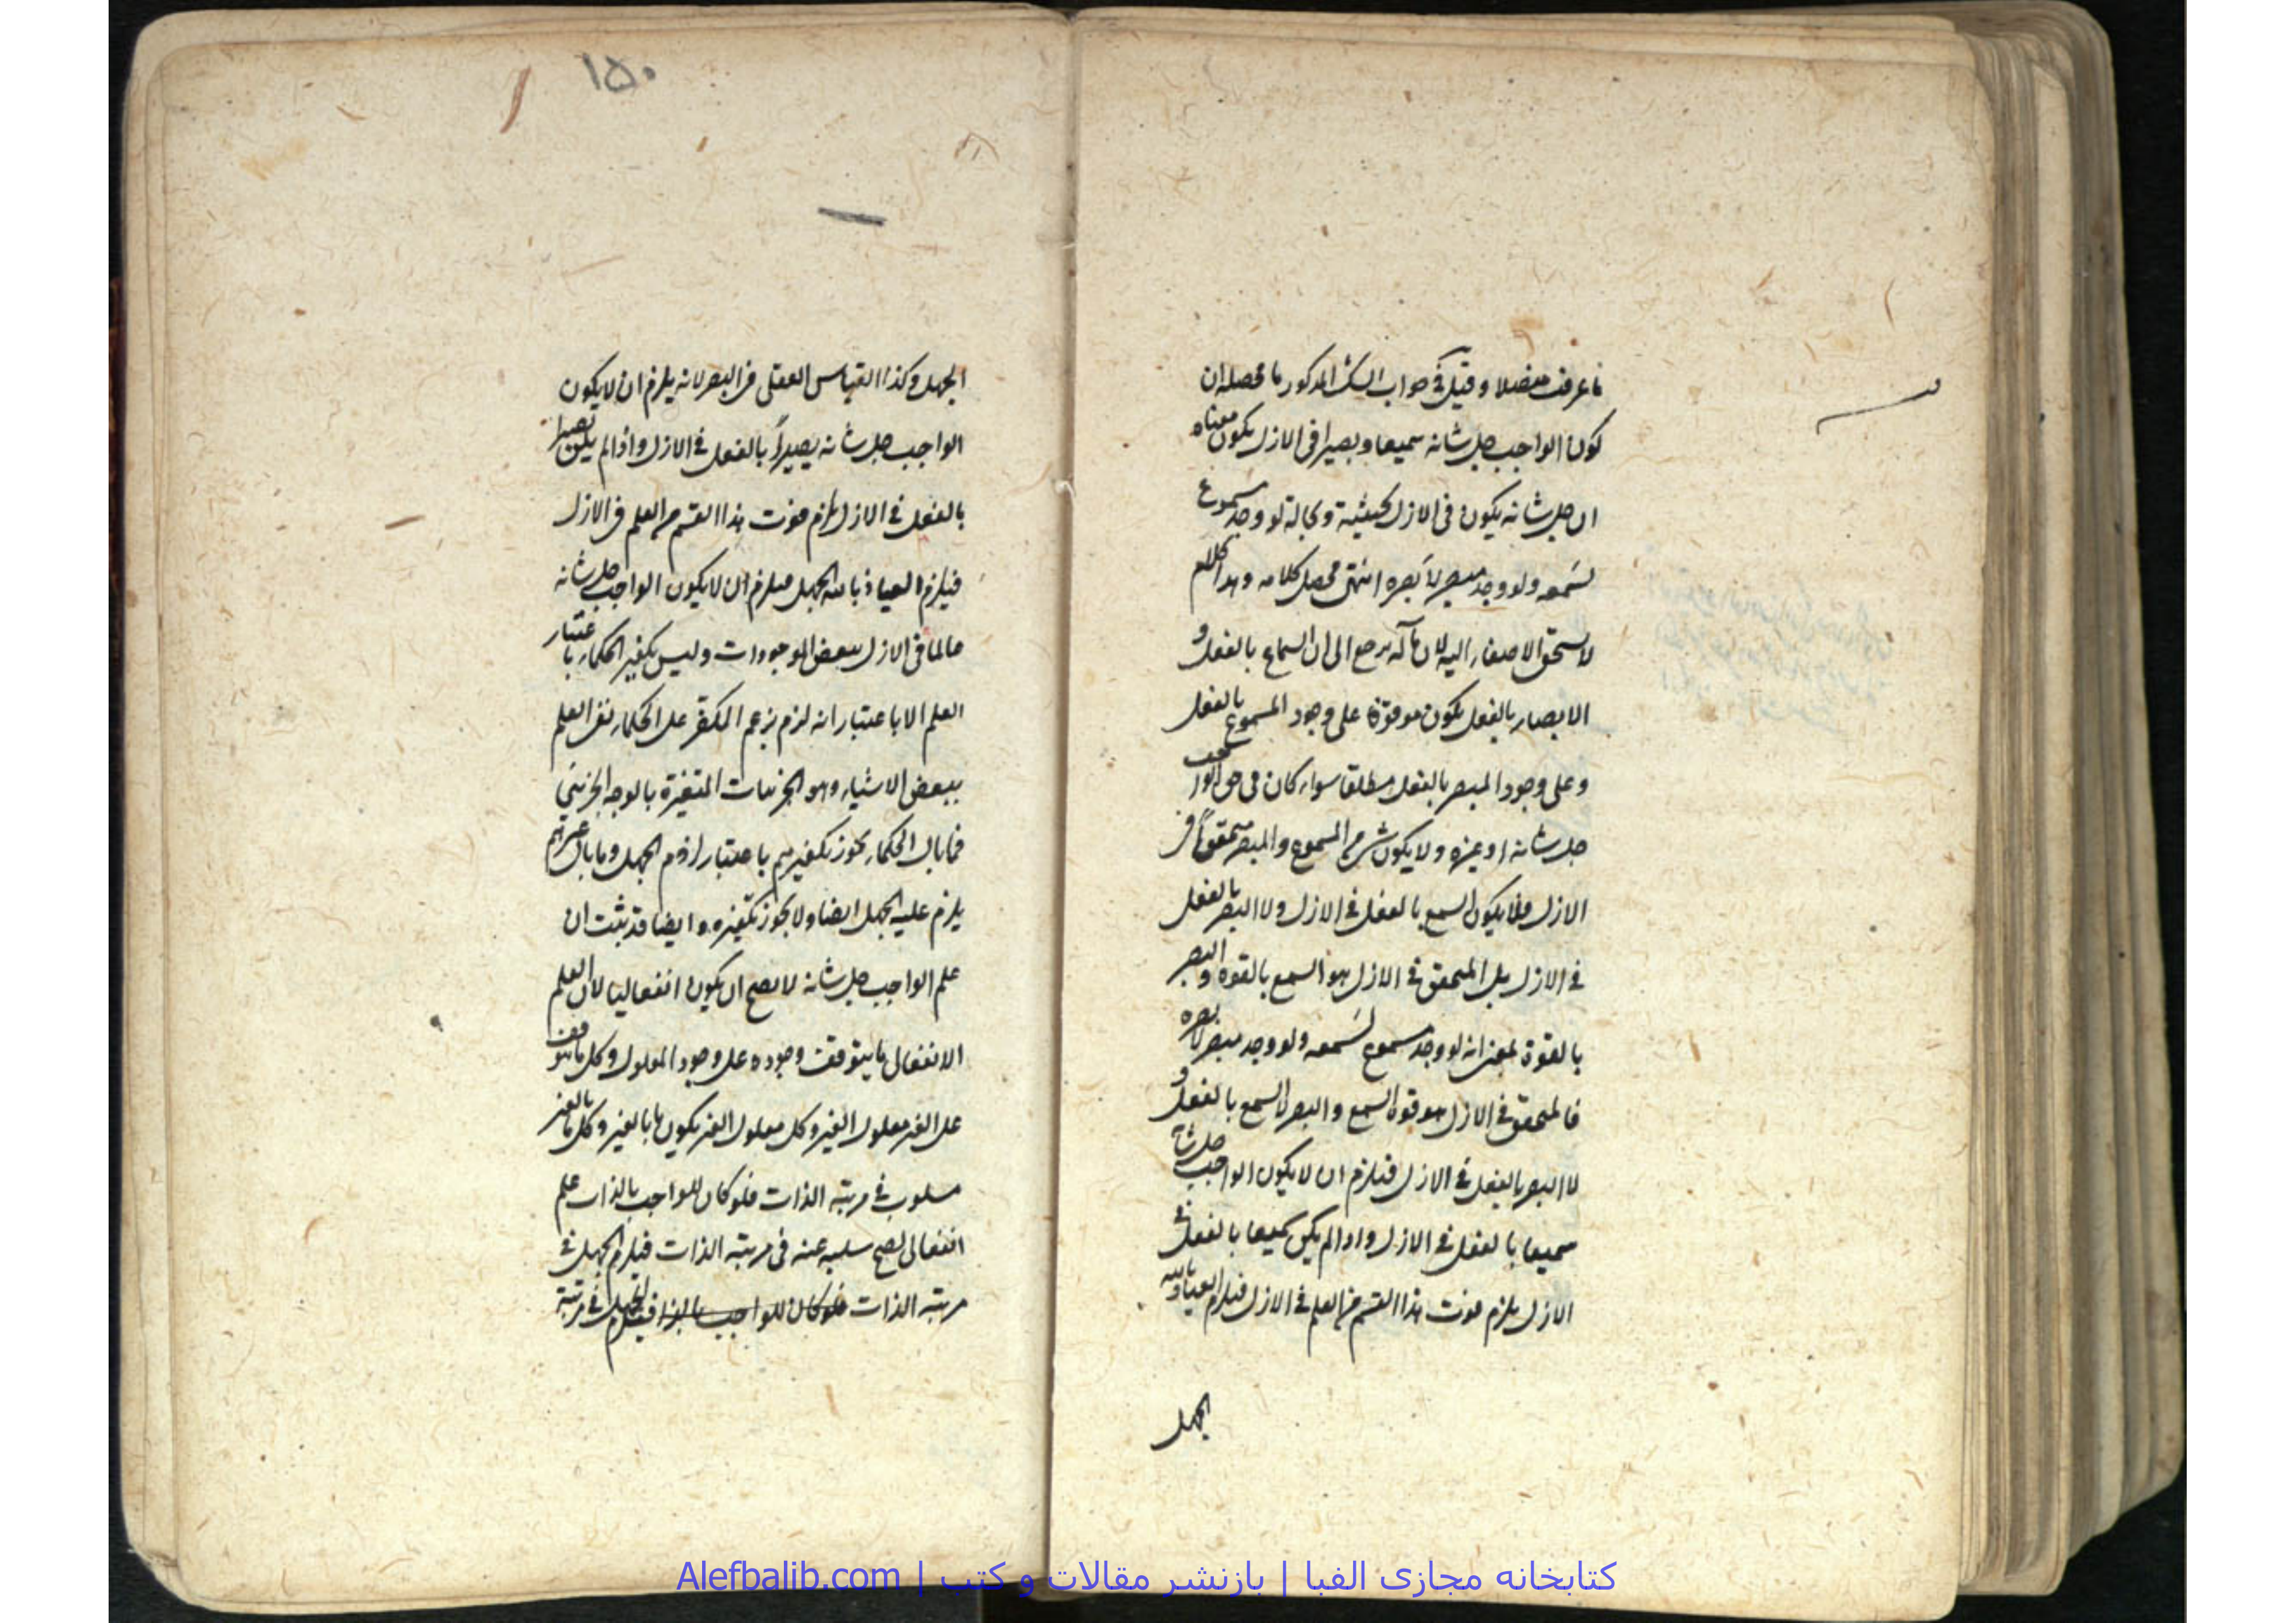 ما عرفت مفصلا وقيل في جواب الشك المذكور ما محصله ان
كون الواجب جل شانه سميعا وبصيرا في الازل يكون معناه
ان جل شانه يكون في الازل بحيثية وبحالة لو وجد مسموع
لسمعه ولو وجد مبصر لأبصره انتهى محصل كلامه وهذا الكلام
لا يستحق الاصغاء اليه لان مآله يرجع الى ان السماع بالفعل و
الابصار بالفعل يكون موقوفة على وجود المسموع بالفعل
وعلى وجود المبصر بالفعل مطلقا سواء كان في حق الواجب
جل شانه او غيره ولا يكون شيء من المسموع والمبصر متحققاً في
الازل فلا يكون السمع بالفعل في الازل ولا البصر بالفعل
في الازل بل المتحقق في الازل هو السمع بالقوة والبصر
بالقوة بمعنى انه لو وجد مسموع لسمعه ولو وجد مبصر لأبصره
فالمتحقق في الازل هو قوة السمع والبصر لا السمع بالفعل و
لا البصر بالفعل في الازل فيلزم ان لا يكون الواجب جل شانه
سميعا بالفعل في الازل واذا لم يكن سميعا بالفعل في
الازل يلزم فوت هذا القسم من العلم في الازل فيلزم العياذ بالله
الجهل
١٥٠
الجهل وكذا القياس العقلي في البصر لانه يلزم ان لا يكون
الواجب جل شانه بصيراً بالفعل في الازل واذا لم يكن بصيرا
بالفعل في الازل يلزم فوت هذا القسم من العلم في الازل
فيلزم العياذ بالله الجهل فيلزم ان لا يكون الواجب جل شانه
عالما في الازل ببعض الموجودات وليس تكفير الحكماء باعتبار
العلم الا باعتبار انه لزم بزعم المكفر على الحكماء نفي العلم
ببعض الاشياء وهو الجزئيات المتغيرة بالوجه الجزئي
فما بال الحكماء يجوز تكفيرهم باعتبار لزوم الجهل وما بال غيرهم
يلزم عليه الجهل ايضا ولا يجوز تكفيره وايضا قد ثبت ان
علم الواجب جل شانه لا يصح ان يكون انفعاليا لان العلم
الانفعالي ما يتوقف وجوده على وجود المعلول وكل ما يتوقف
على الغير معلول الغير وكل معلول الغير يكون ما بالغير وكل ما بالغير
مسلوب في مرتبة الذات فلو كان للواجب بالذات علم
انفعالي يصح سلبه عنه في مرتبة الذات فيلزم الجهل في
مرتبة الذات فلو كان للواجب بالذات فيلزم الجهل في مرتبة
كتابخانه مجازی الفبا | بازنشر مقالات و کتب | Alefbalib.com